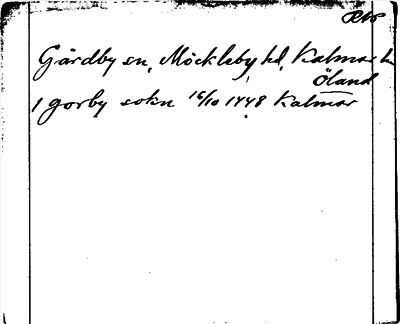 Gårdby sn, Möckleby hd, Kalmar l.
Öland
1 gorby sokn 16/10 1448 Kalmar